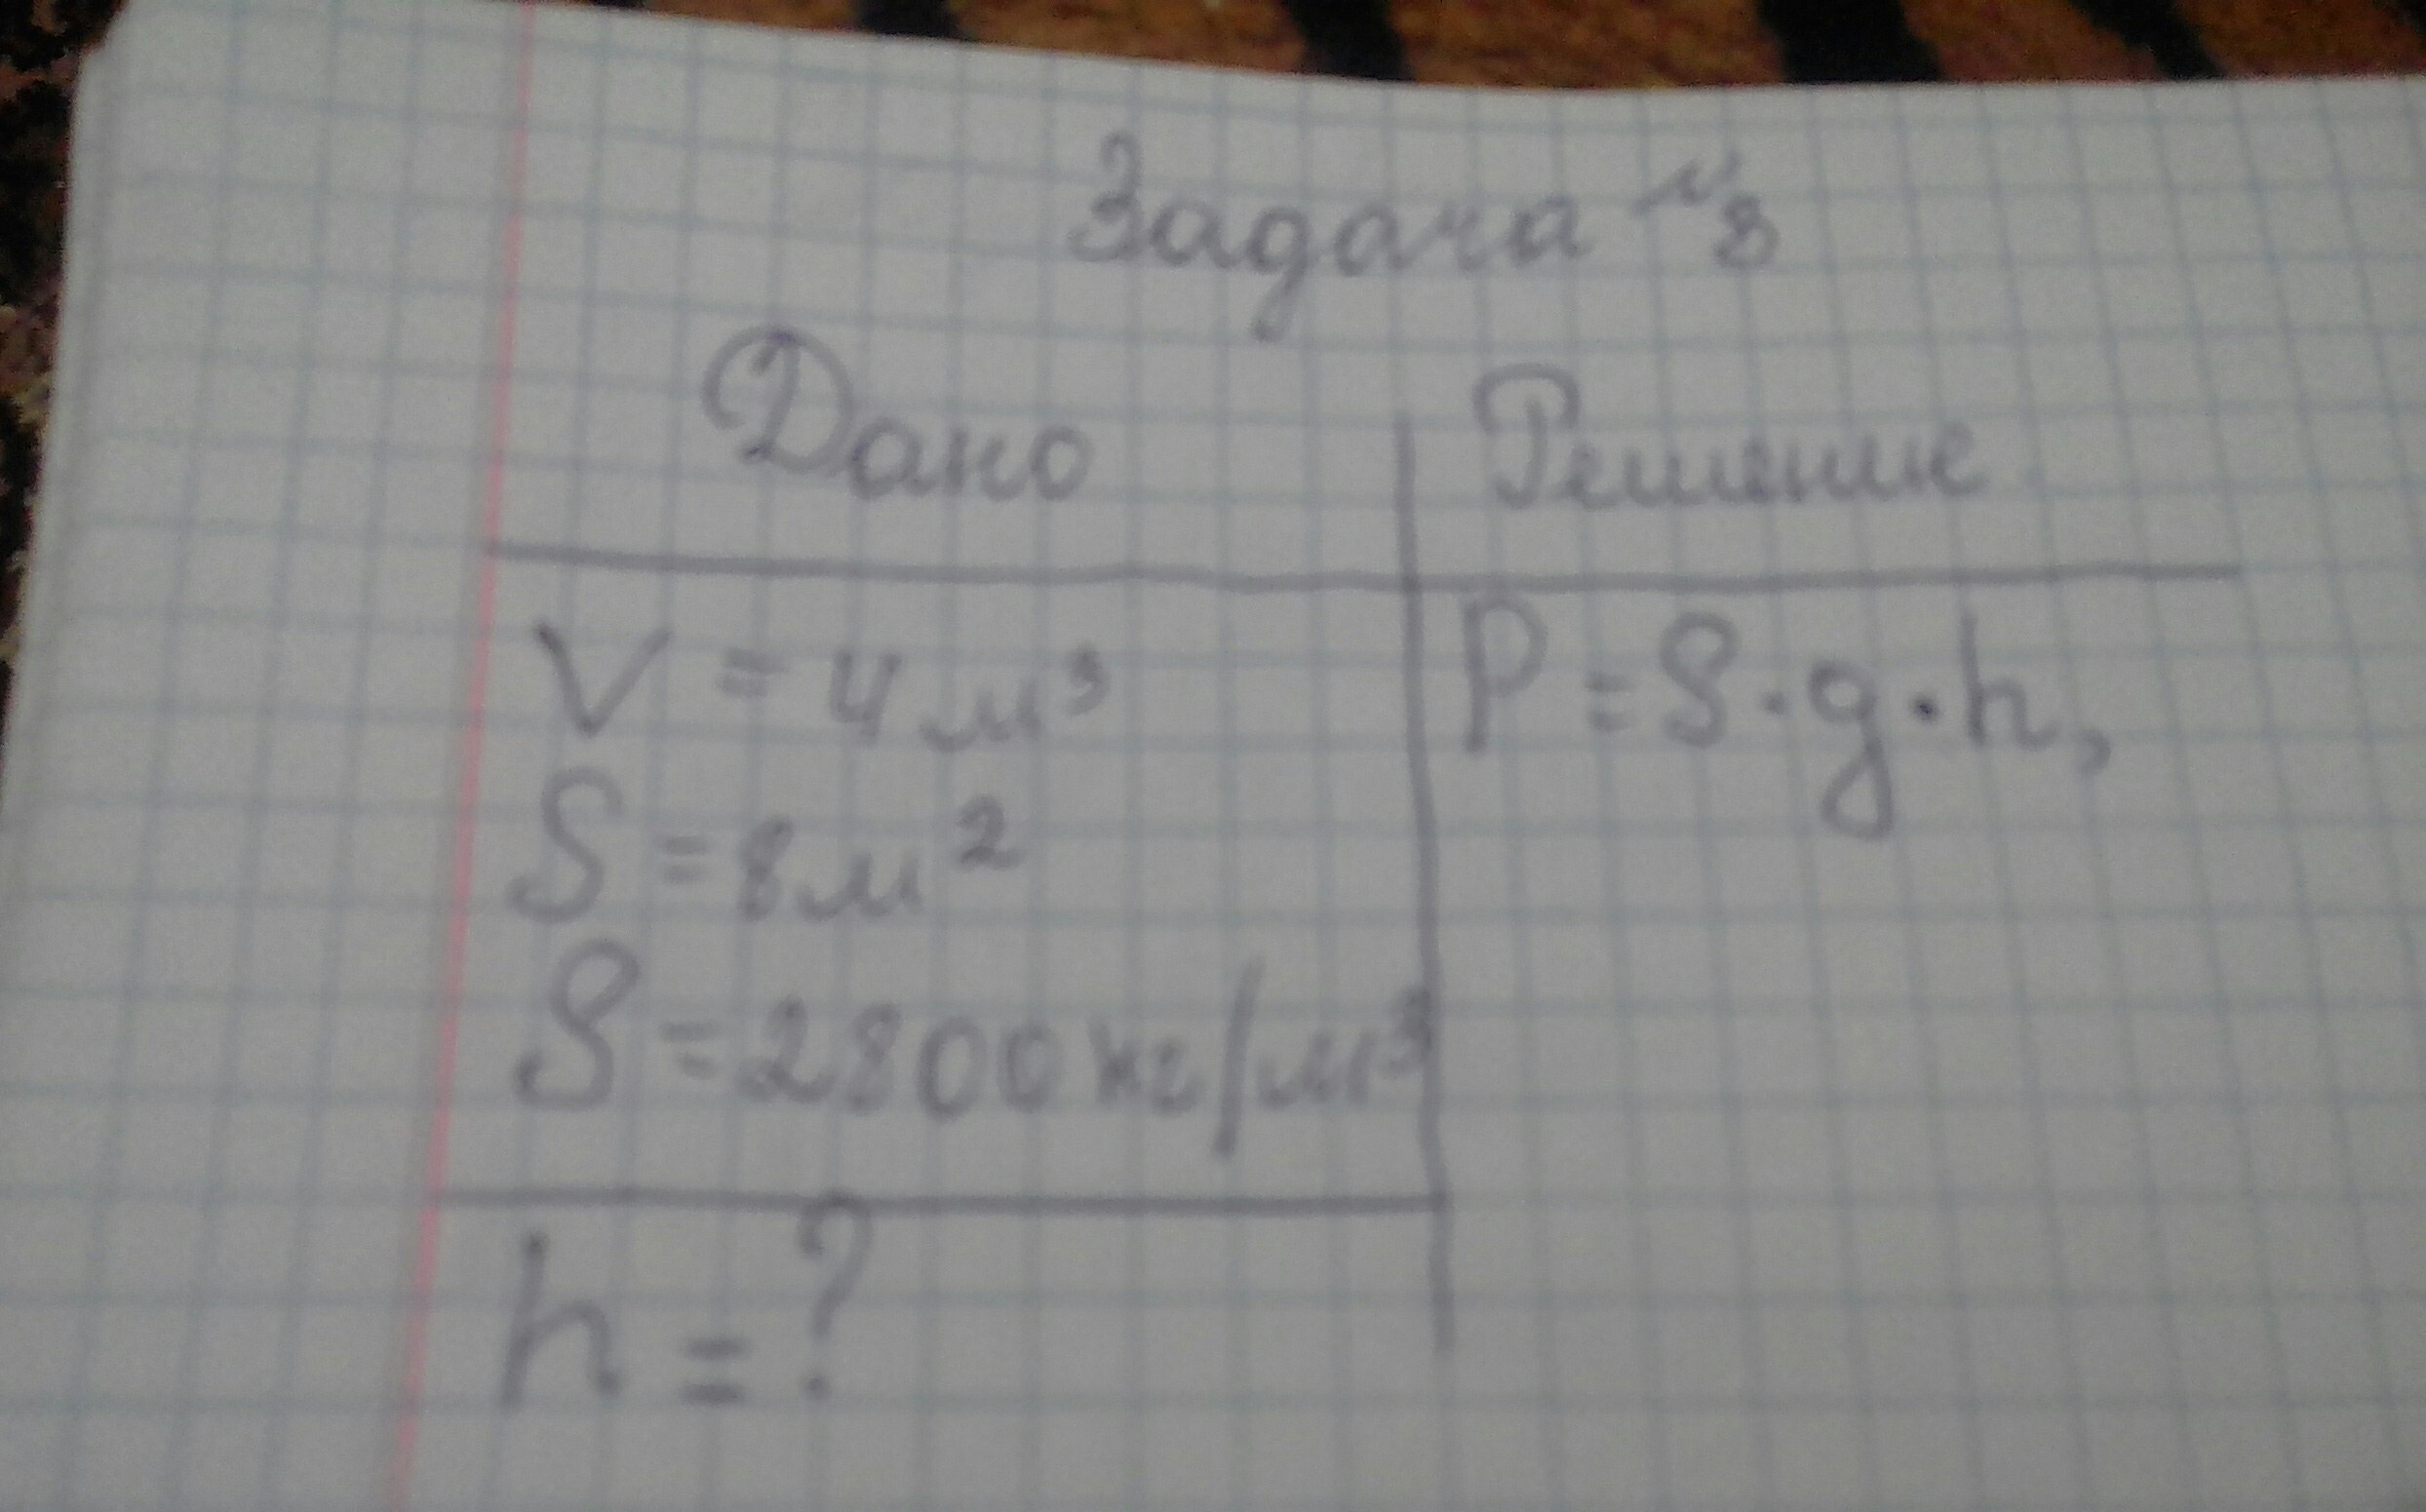 Задача №8
Дано
Решение
V = 4 м³
P = ρ·g·h,
S = 8 м²
ρ = 2800 кг/м³
h = ?